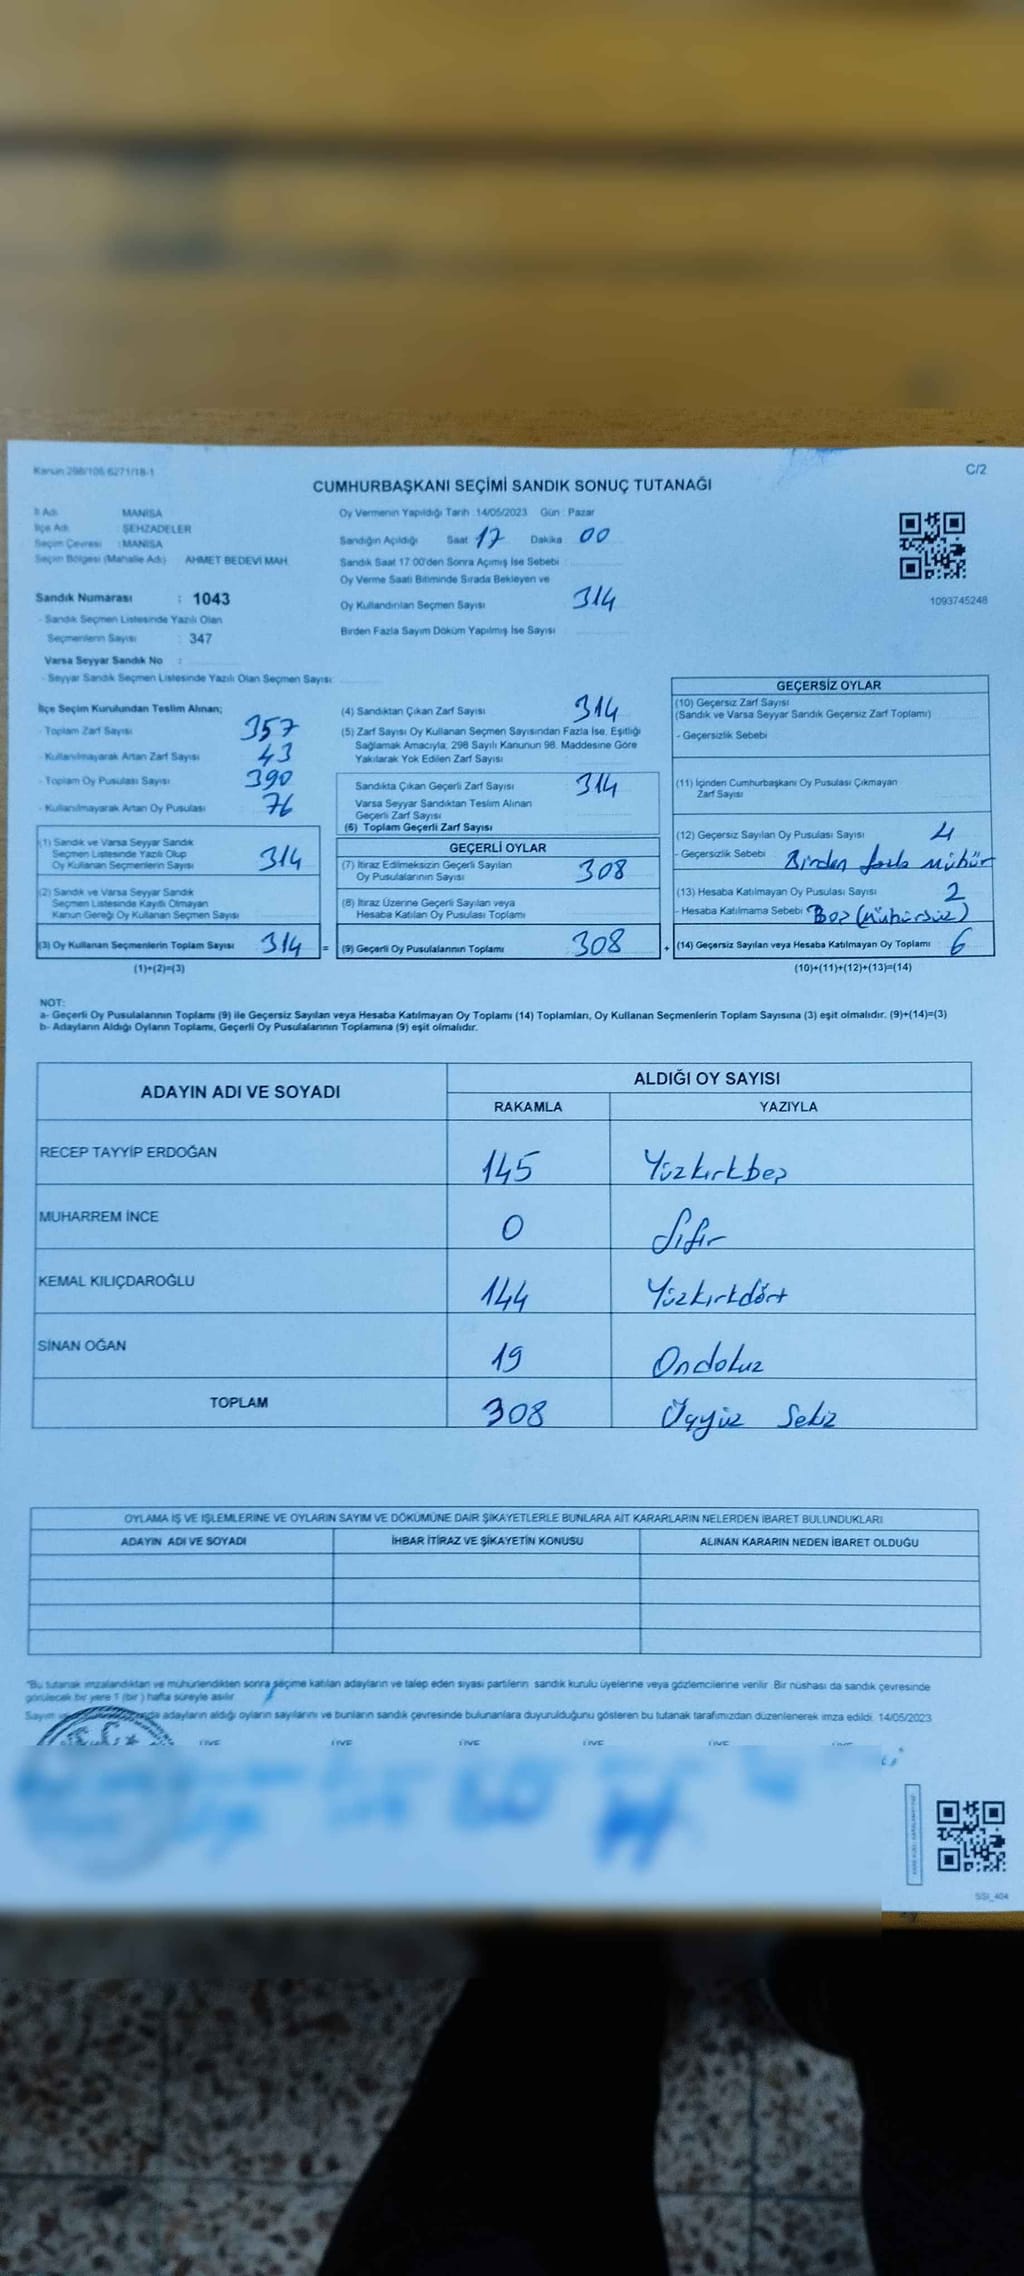 Kanun 298/105 6271/18-1
C/2
CUMHURBAŞKANI SEÇİMİ SANDIK SONUÇ TUTANAĞI
İl Adı MANİSA
İlçe Adı : ŞEHZADELER
Seçim Çevresi : MANİSA
Seçim Bölgesi (Mahalle Adı) AHMET BEDEVİ MAH.
Sandık Numarası : 1043
- Sandık Seçmen Listesinde Yazılı Olan
Seçmenlerin Sayısı : 347
Varsa Seyyar Sandık No :
- Seyyar Sandık Seçmen Listesinde Yazılı Olan Seçmen Sayısı
Oy Vermenin Yapıldığı Tarih : 14/05/2023 Gün : Pazar
Sandığın Açıldığı Saat 17 Dakika 00
Sandık Saat 17:00'den Sonra Açımış İse Sebebi :
Oy Verme Saati Bitiminde Sırada Bekleyen ve
Oy Kullandırılan Seçmen Sayısı 314
Birden Fazla Sayım Döküm Yapılmış İse Sayısı
1093745248
İlçe Seçim Kurulundan Teslim Alınan;
- Toplam Zarf Sayısı 357
- Kullanılmayarak Artan Zarf Sayısı 43
- Toplam Oy Pusulası Sayısı 390
- Kullanılmayarak Artan Oy Pusulası 76
(1) Sandık ve Varsa Seyyar Sandık
Seçmen Listesinde Yazılı Olup
Oy Kullanan Seçmenlerin Sayısı 314
(2) Sandık ve Varsa Seyyar Sandık
Seçmen Listesinde Kayıtlı Olmayan
Kanun Gereği Oy Kullanan Seçmen Sayısı
(3) Oy Kullanan Seçmenlerin Toplam Sayısı 314 =
(1)+(2)=(3)
(4) Sandıktan Çıkan Zarf Sayısı 314
(5) Zarf Sayısı Oy Kullanan Seçmen Sayısından Fazla İse, Eşitliği
Sağlamak Amacıyla, 298 Sayılı Kanunun 98. Maddesine Göre
Yakılarak Yok Edilen Zarf Sayısı
Sandıkta Çıkan Geçerli Zarf Sayısı 314
Varsa Seyyar Sandıktan Teslim Alınan
Geçerli Zarf Sayısı
(6) Toplam Geçerli Zarf Sayısı
GEÇERLİ OYLAR
(7) İtiraz Edilmeksizin Geçerli Sayılan
Oy Pusulalarının Sayısı 308
(8) İtiraz Üzerine Geçerli Sayılan veya
Hesaba Katılan Oy Pusulası Toplamı
(9) Geçerli Oy Pusulalarının Toplamı 308 +
GEÇERSİZ OYLAR
(10) Geçersiz Zarf Sayısı
(Sandık ve Varsa Seyyar Sandık Geçersiz Zarf Toplamı)
- Geçersizlik Sebebi
(11) İçinden Cumhurbaşkanı Oy Pusulası Çıkmayan
Zarf Sayısı
(12) Geçersiz Sayılan Oy Pusulası Sayısı 4
- Geçersizlik Sebebi Birden fazla mühür
(13) Hesaba Katılmayan Oy Pusulası Sayısı 2
- Hesaba Katılmama Sebebi Boş (Mühürsüz)
(14) Geçersiz Sayılan veya Hesaba Katılmayan Oy Toplamı 6
(10)+(11)+(12)+(13)=(14)
NOT:
a- Geçerli Oy Pusulalarının Toplamı (9) ile Geçersiz Sayılan veya Hesaba Katılmayan Oy Toplamı (14) Toplamları, Oy Kullanan Seçmenlerin Toplam Sayısına (3) eşit olmalıdır. (9)+(14)=(3)
b- Adayların Aldığı Oyların Toplamı, Geçerli Oy Pusulalarının Toplamına (9) eşit olmalıdır.
ADAYIN ADI VE SOYADI
ALDIĞI OY SAYISI
RAKAMLA YAZIYLA
RECEP TAYYİP ERDOĞAN 145 Yüzkırkbeş
MUHARREM İNCE 0 Sıfır
KEMAL KILIÇDAROĞLU 144 Yüzkırkdört
SİNAN OĞAN 19 Ondokuz
TOPLAM 308 Üçyüz Sekiz
OYLAMA İŞ VE İŞLEMLERİNE VE OYLARIN SAYIM VE DÖKÜMÜNE DAİR ŞİKAYETLERLE BUNLARA AİT KARARLARIN NELERDEN İBARET BULUNDUKLARI
ADAYIN ADI VE SOYADI İHBAR İTİRAZ VE ŞİKAYETİN KONUSU ALINAN KARARIN NEDEN İBARET OLDUĞU
"Bu tutanak imzalandıktan ve mühürlendikten sonra seçime katılan adayların ve talep eden siyasi partilerin sandık kurulu üyelerine veya gözlemcilerine verilir. Bir nüshası da sandık çevresinde
görülecek bir yere 1 (bir) hafta süreyle asılır.
Sayım adayların aldığı oyların sayılarını ve bunların sandık çevresinde bulunanlara duyurulduğunu gösteren bu tutanak tarafımızdan düzenlenerek imza edildi. 14/05/2023
ÜYE ÜYE ÜYE ÜYE ÜYE ÜYE
SSI_404